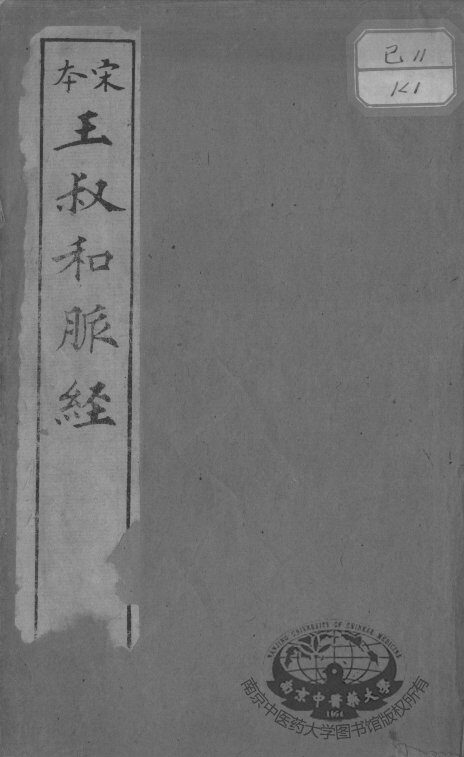 宋本
王叔和脈経
己 11
1<1
NANJING UNIVERSITY OF CHINESE MEDICINE
南京中醫藥大學
1954
南京中医药大学图书馆版权所有